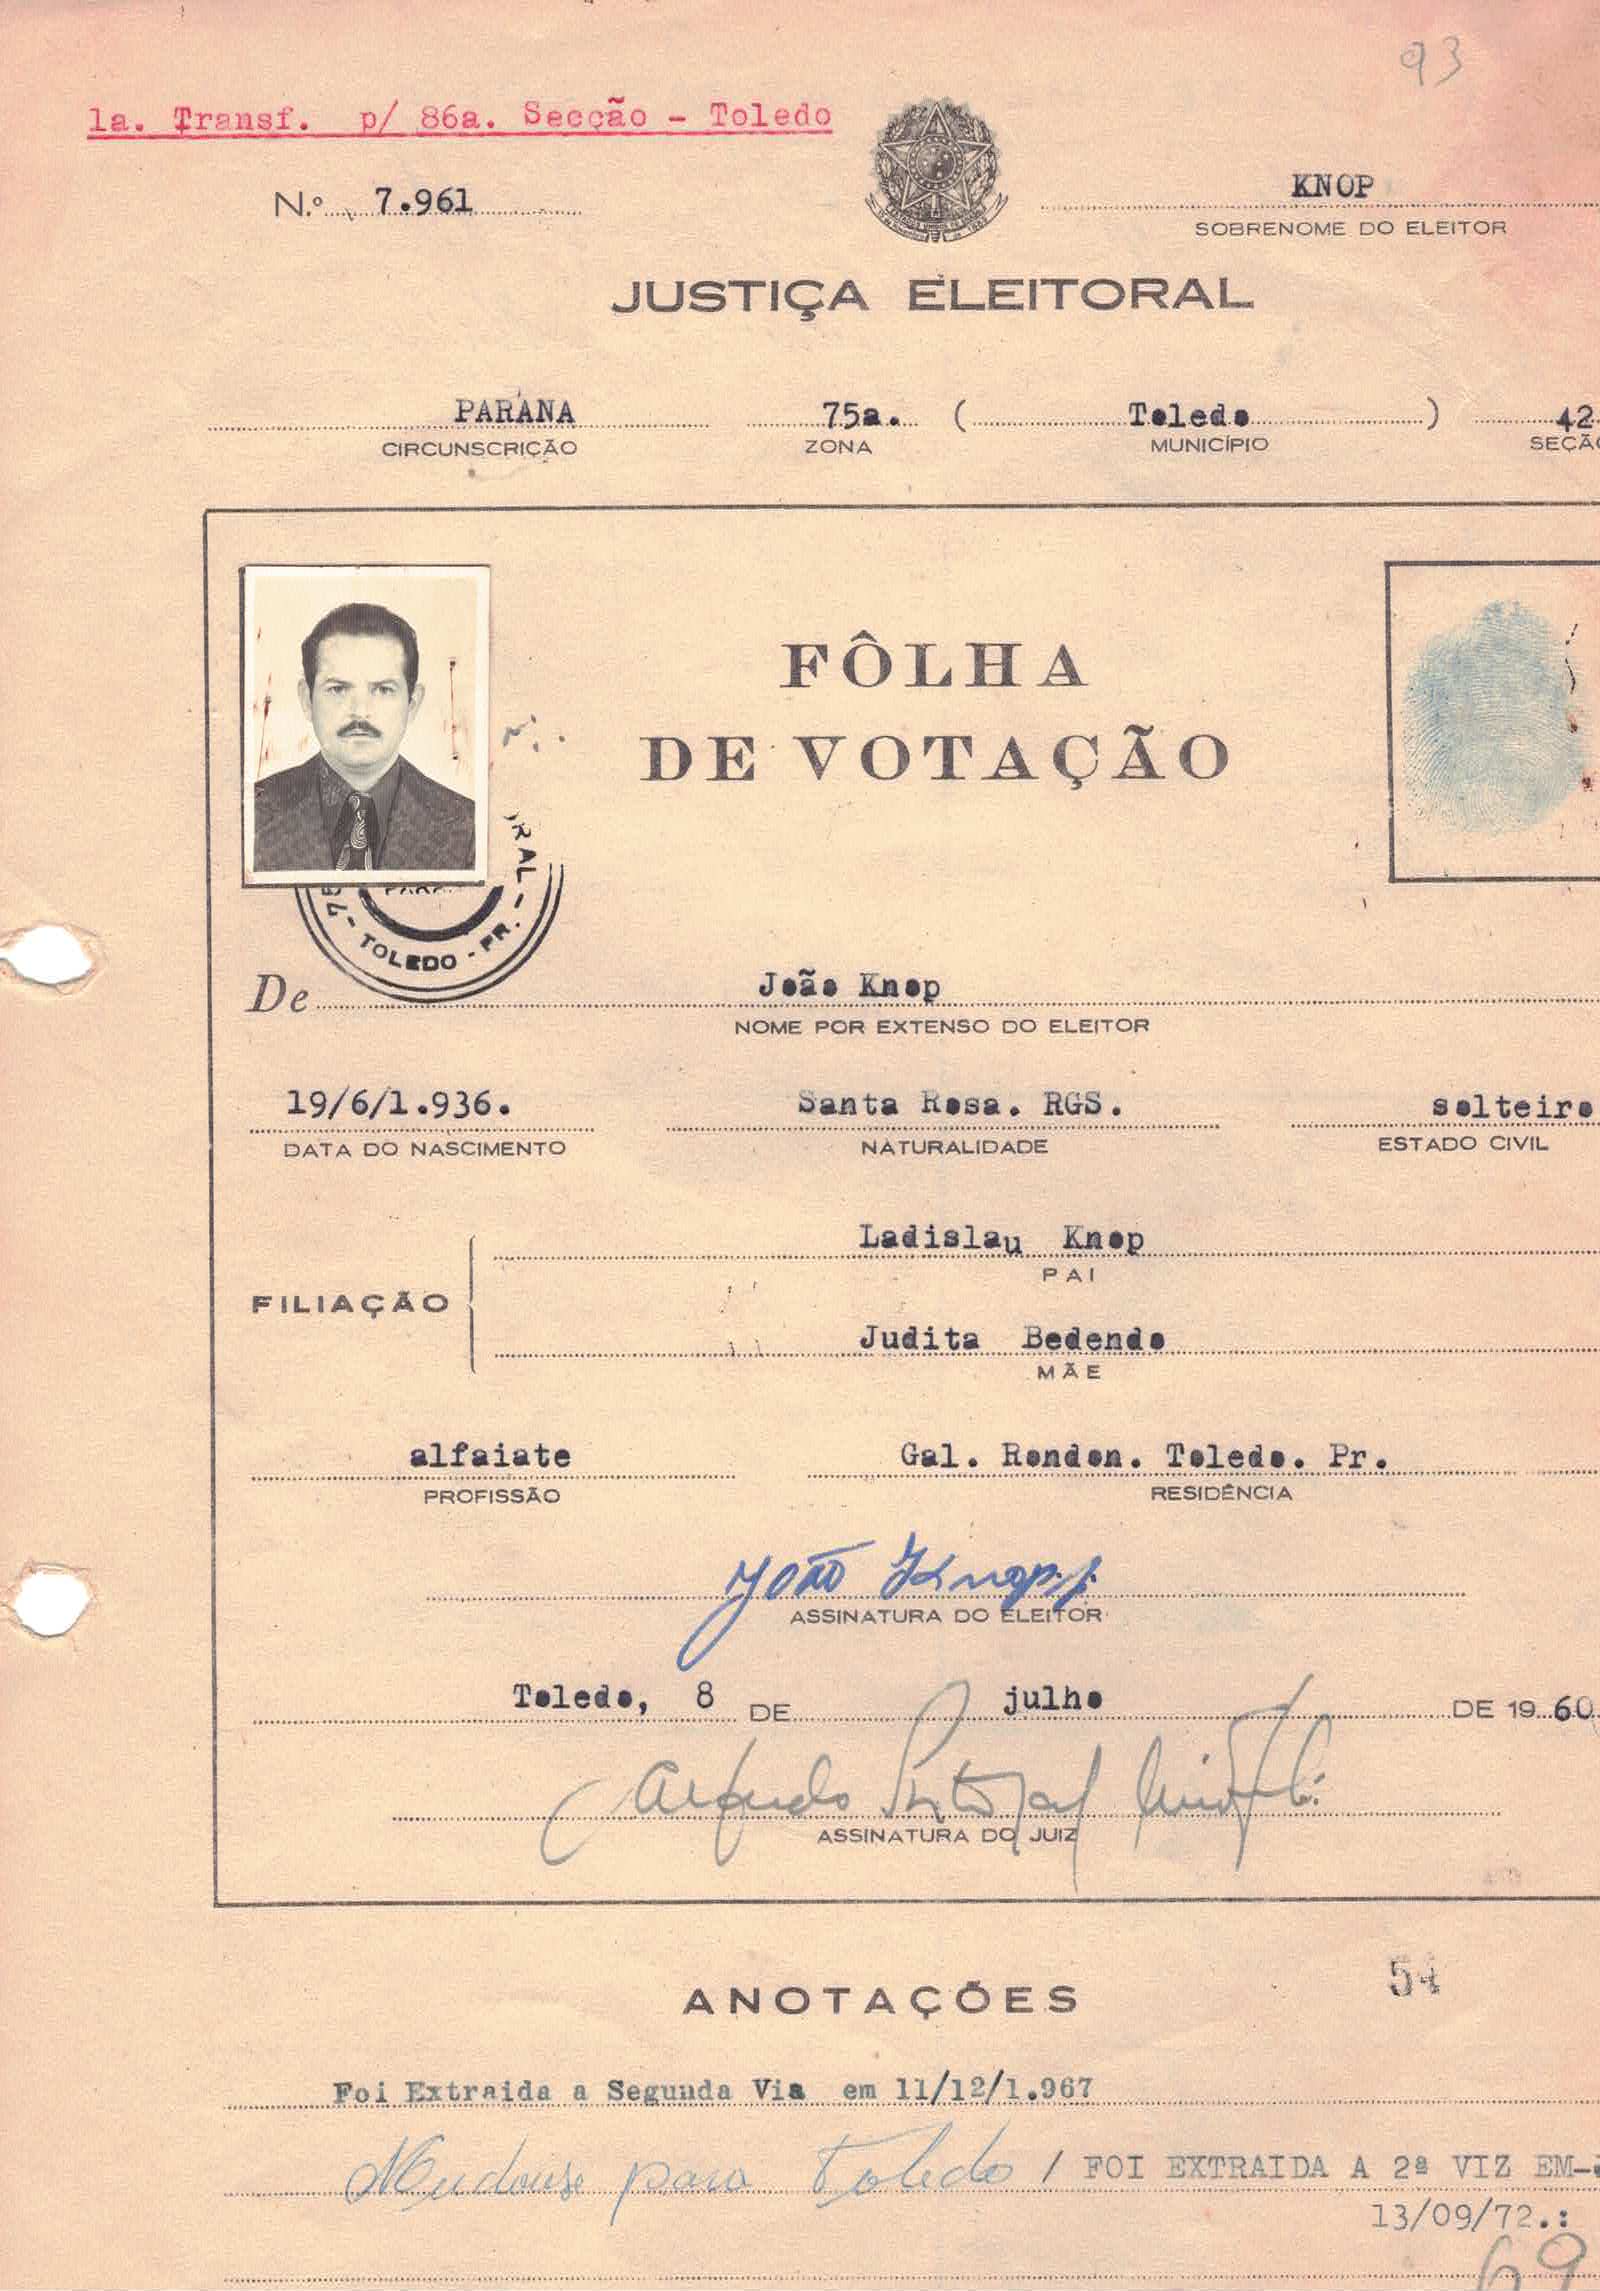 93
1a. Transf. p/ 86a. Secção - Toledo
N.º 7.961
KNOP
SOBRENOME DO ELEITOR
JUSTIÇA ELEITORAL
PARANA 75a. ( Toledo ) 42
CIRCUNSCRIÇÃO ZONA MUNICÍPIO SEÇÃO
FÔLHA
DE VOTAÇÃO
RAL - TOLEDO - PR. -
De João Knop
NOME POR EXTENSO DO ELEITOR
19/6/1.936. Santa Rosa. RGS. solteiro
DATA DO NASCIMENTO NATURALIDADE ESTADO CIVIL
Ladislau Knop
PAI
FILIAÇÃO
Judita Bedendo
MÃE
alfaiate Gal. Rondon. Toledo. Pr.
PROFISSÃO RESIDÊNCIA
João Knop
ASSINATURA DO ELEITOR
Toledo, 8 DE julho DE 1960
Alfredo
ASSINATURA DO JUIZ
ANOTAÇÕES
54
Foi Extraida a Segunda Via em 11/12/1.967
Mudouse para Toledo / FOI EXTRAIDA A 2ª VIZ EM-
13/09/72.:
69